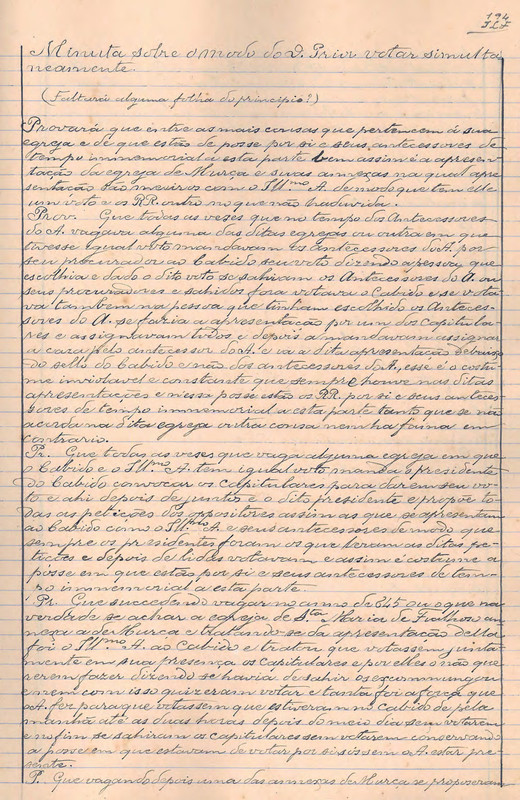 194
Minuta sobre o modo do D. Prior votar simulta
neamente.
(Faltará alguma folha do principio?)
Provará que entre as mais cousas que pertencem á sua
egreja e de que estão de posse por si e seus antecessores de
tempo immemorial a esta parte bem assim é a apresen
tação da egreja de Murça e suas annexas na qual apre
sentação são meeiros com o Ill.mo A. de modo que tem elle
um voto e os RR. outro no que não ha duvida.
Prov. Que todas as vezes que no tempo dos Antecessores
do A. vagava alguma das ditas egrejas ou outra em que
tivesse igual voto mandavam os antecessores do A. por
seu procurador ao Cabido seu voto dizendo a pessoa que
escolhia e dado o dito voto se sahiram os Antecessores do A. ou
seus procuradores e sahidos fora votava o Cabido e se vota
va tambem na pessoa que tinham escolhido os Anteces-
sores do A. se fazia a apresentação por um dos capitula-
res e assignavam todos, e depois a mandavam assignar
a casa pelo antecessor do A. e va a dita apresentação debaixo
do sello do Cabido e não dos antecessores do A, esse é o costu
me inviolavel e constante que sempre houve nas ditas
apresentações e nessa posse estão os RR. por si e seus anteces-
sores de tempo immemorial a esta parte tanto que se não
acorda na dita egreja outra cousa nem ha fama em
contrario.
Pr. Que todas as vezes que vaga alguma egreja em que
o Cabido e o Ill.mo A. tem igual voto manda o presidente
do Cabido convocar os capitulares para darem seu vo-
to e ahi depois de juntos e o dito presidente e propõe to
das as petições dos oppositores assim as que se apresentam
ao Cabido como o Ill.mo A. e seus antecessores de modo que
sempre os presidentes foram os que leram as ditas pe-
tições e depois de lidas votavam e assim é costume a
posse em que estão por si e seus antecessores de tem-
po immemorial a esta parte.
Pr. Que succedendo vagar no anno de 645 ou o que na
verdade se achar a egreja de Sta Maria de Fiolhoso an
nexa a de Murça e tratando-se da apresentação della
foi o Ill.mo A. ao Cabido e tratou que votassem junta
mente em sua presença os capitulares e por elles o não que
rerem fazer dizendo se havia de sahir os excommungou
e nem com isso quizeram votar e tanta foi a força que
o A. fez para que votassem que estiveram no Cabido de pela
manhã até as duas horas depois do meio dia sem votarem
e no fim se sahiram os capitulares sem votarem conservando
a posse em que estavam de votar por si sós sem o A. estar pre-
sente.
P. Que vagando depois uma das annexas de Murça se propozeram